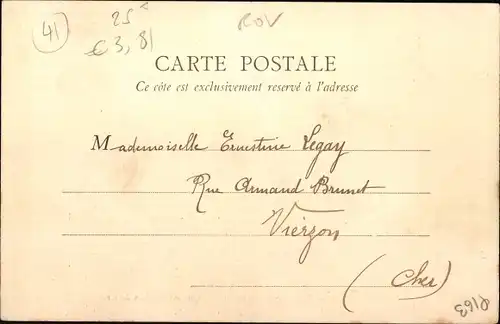 41
25
€ 3,81
ROV
CARTE POSTALE
Ce côte est exclusivement reservé à l'adresse
Mademoiselle Ernestine Legay
Rue Armand Brunet
Vierzon
(Cher)